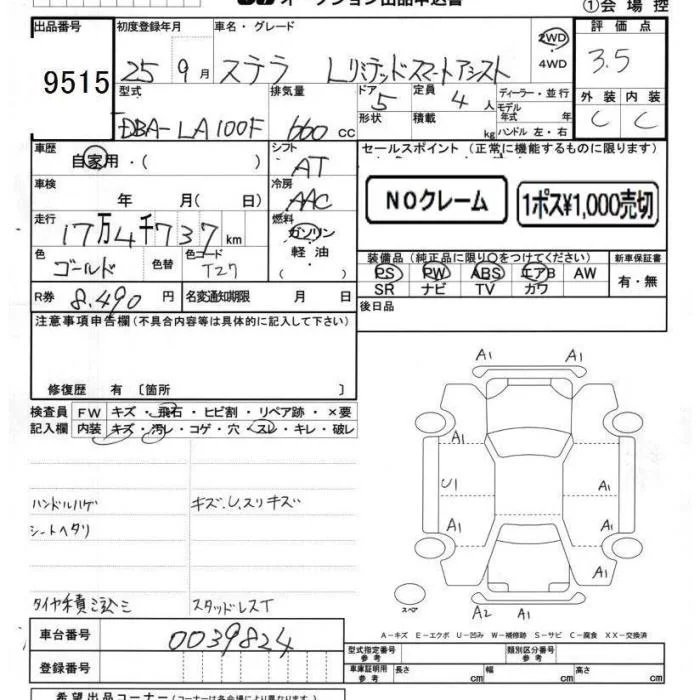 オークション出品申込書
①会場控
出品番号 初度登録年月 車名・グレード 評価点
9515 25 9月 ステラ Lリミテッドスマートアシスト 2WD ・ 4WD 3.5
型式 排気量 ドア 5 定員 4 人 ディーラー・並行 外装 内装
DBA-LA100F 660 cc 形状 積載 kg モデル年式 年 ハンドル 左・右 C C
車歴 自家用・( ) シフト AT セールスポイント(正常に機能するものに限ります)
車検 年 月( 日) 冷房 AAC NOクレーム 1ポス¥1,000売切
走行 17万4千737km 燃料 ガソリン 軽油 ( )
色 ゴールド 色替 色コード T27
装備品(純正品に限り○をつけてください) 新車保証書
PS PW ABS エアB AW 有・無
SR ナビ TV カワ
R券 8,490円 名変通知期限 月 日 後日品
注意事項申告欄(不具合内容等は具体的に記入して下さい)
修復歴 有〔箇所 〕
検査員 FW キズ・飛石・ヒビ割・リペア跡・×要
記入欄 内装 キズ・汚レ・コゲ・穴・スレ・キレ・破レ
A1 A1
A1
U1 A1 A1
A1 A1
ハンドルハゲ キズ、U、スリキズ
シートヘタリ
タイヤ積込ミ スタッドレスT
スペア A2 A1
A-キズ E-エクボ U-凹み W-補修跡 S-サビ C-腐食 XX-交換済
車台番号 0039824
型式指定番号 参考 類別区分番号 参考
登録番号 車庫証明用 参考 長さ cm 幅 cm 高さ cm
希望出品コーナー(コーナーは各会場により異なります)